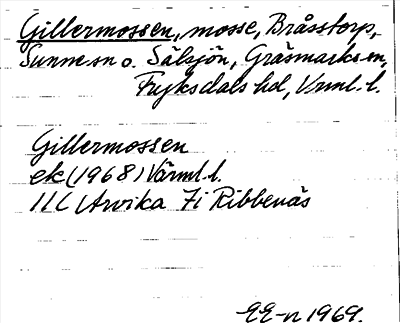 Gillermossen, mosse, Bråsstorp,
Sunne sn o. Sälsjön, Gräsmarks sn,
Fryksdals hd, Vrml. l.
Gillermossen
ek (1968) Värml. l.
11C Arvika 7i Ribbenäs
EE-n 1969.